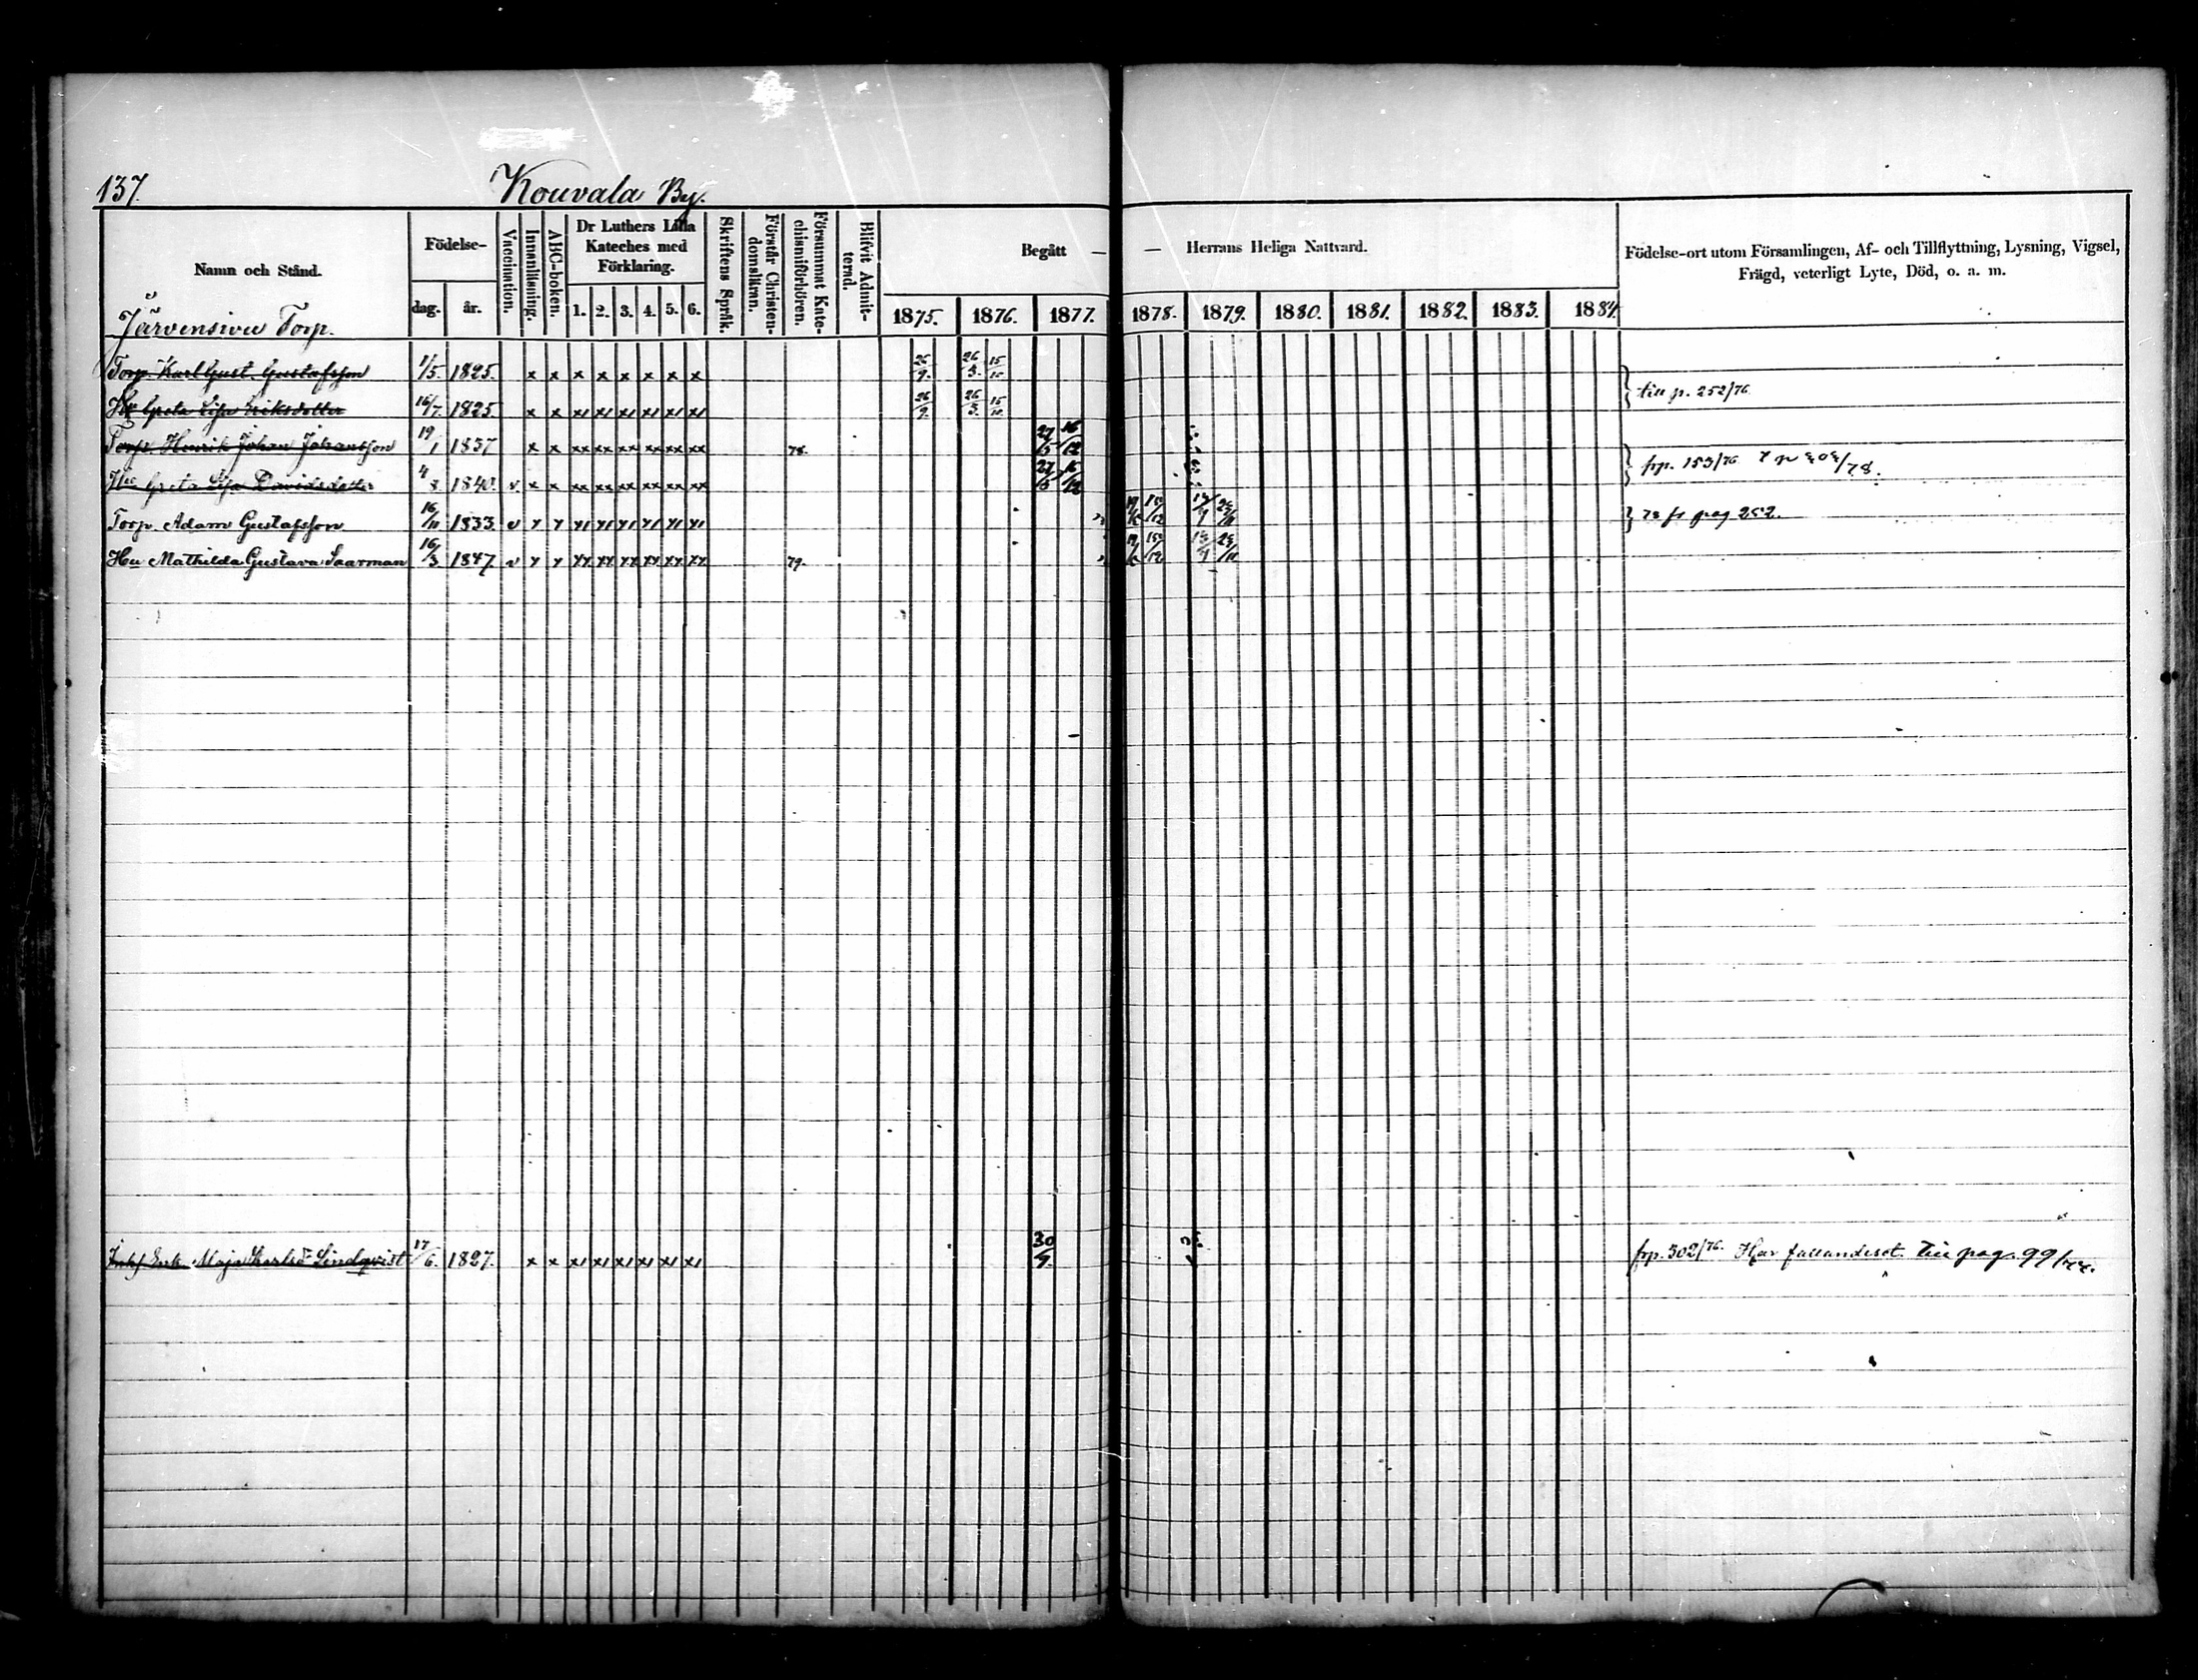 137.
Kouvala By.
Namn och Stånd.
Födelse-
dag.
år.
Vaccination.
Innanläsning.
ABC-boken.
Dr Luthers Lilla Kateches med Förklaring.
1. 2. 3. 4. 5. 6.
Skriftens Språk.
Förstår Christen-
domsläran.
Försummat Kate-
chismiförhören.
Blifvit Admit-
terad.
Begått — — Herrans Heliga Nattvard.
1875. 1876. 1877. 1878. 1879. 1880. 1881. 1882. 1883. 1884.
Födelse-ort utom Församlingen, Af- och Tillflyttning, Lysning, Vigsel,
Frägd, veterligt Lyte, Död, o. a. m.
Järvensivu Torp.
Torp. Karl Gust. Gustafsson 1/5. 1825. x x x x x x x x 26/9. 26/3. 15/10
Hu Greta Lisa Eriksdotter 16/7. 1825 x x x x x x x x 26/9. 26/3. 15/10. till p. 252/76
Torp. Henrik Johan Johansson 19/1 1837 x x xx xx xx xx xx xx 78. 27/5 16/12
Hu Greta Lisa Davidsdotter 4/8 1840. v. x x xx xx xx xx xx xx 27/5 16/12 frp. 153/76
Torp. Adam Gustafsson 16/11 1833 v 78 fr pag 252.
Hu Mathilda Gustava Saarman 16/3 1847 v 79.
Enk. Maja Karlsd Lindqvist 17/6. 1827. x x 30/9. frp. 302/76. Har fallandesot. Till pag. 99/77.